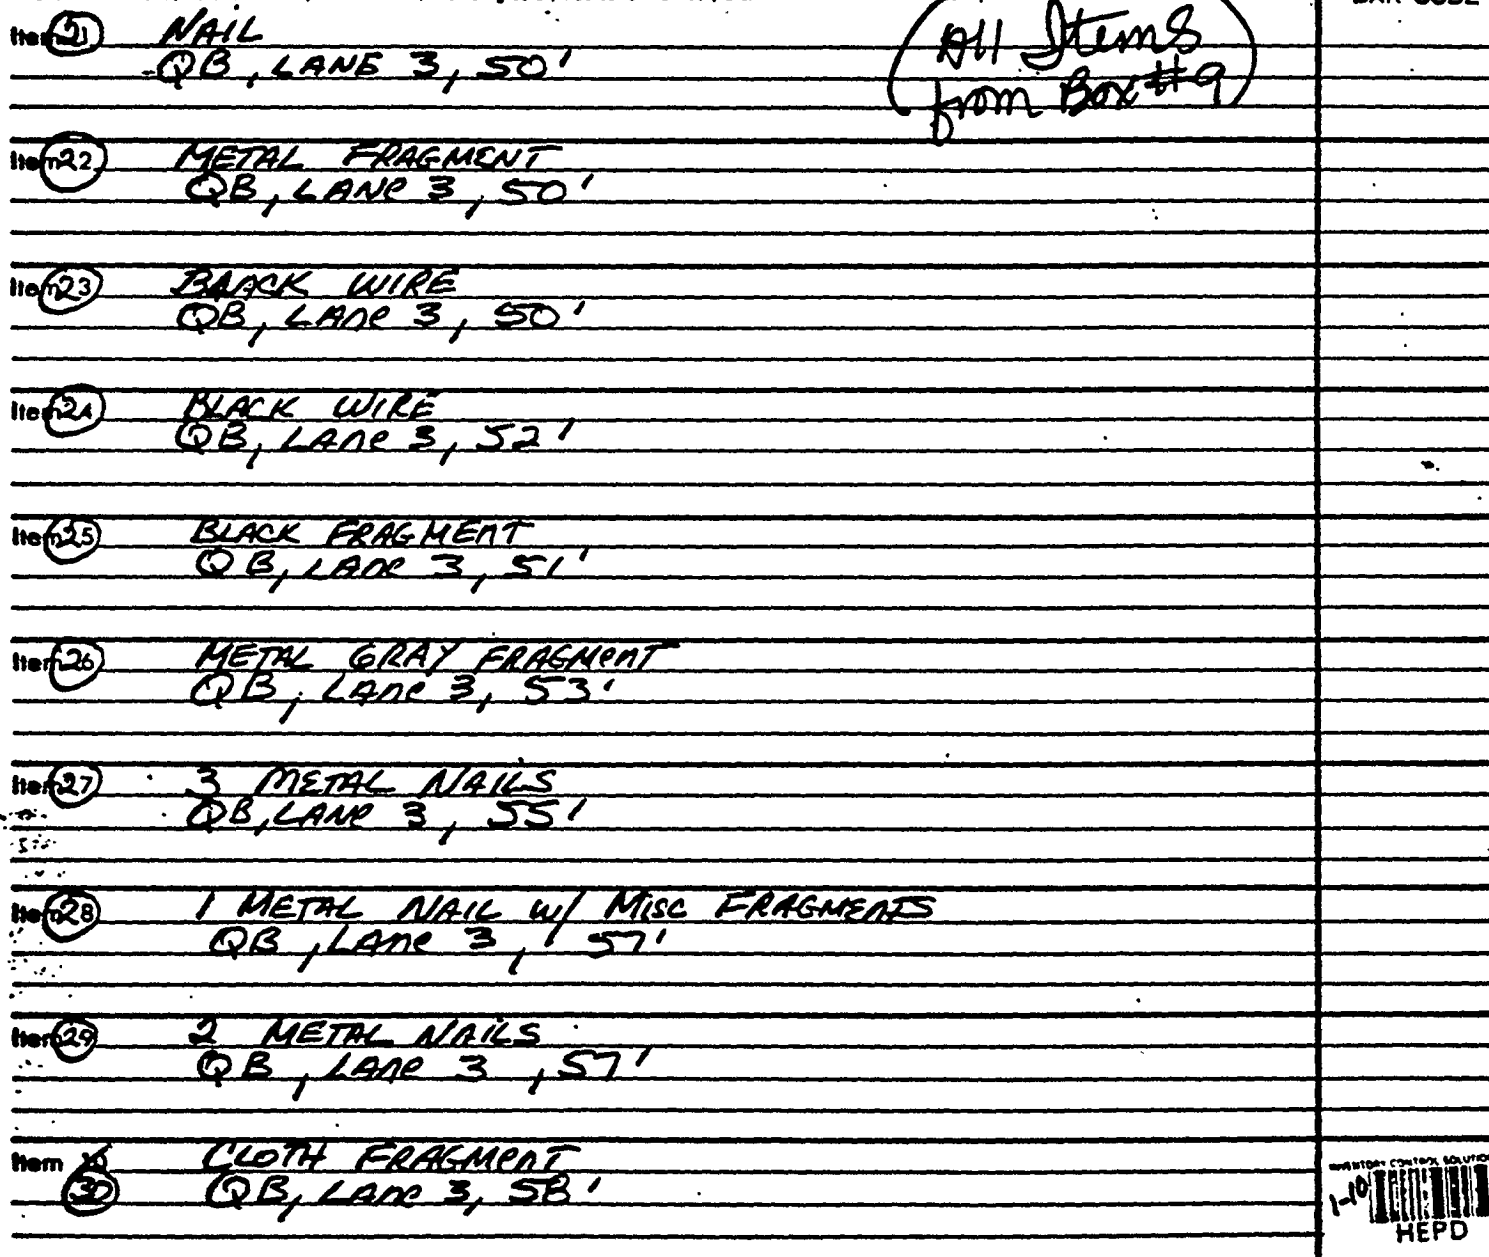 BAR CODE
Item 21 NAIL
QB, LANE 3, 50'
All Items
from Box #9
Item 22 METAL FRAGMENT
QB, LANE 3, 50'
Item 23 BLACK WIRE
QB, LANE 3, 50'
Item 24 BLACK WIRE
QB, LANE 3, 52'
Item 25 BLACK FRAGMENT
QB, LANE 3, 51'
Item 26 METAL GRAY FRAGMENT
QB, LANE 3, 53'
Item 27 3 METAL NAILS
QB, LANE 3, 55'
Item 28 1 METAL NAIL W/ MISC FRAGMENTS
QB, LANE 3, 57'
Item 29 2 METAL NAILS
QB, LANE 3, 57'
Item CLOTH FRAGMENT
30 QB, LANE 3, 58'
INVENTORY CONTROL SOLUTION
1-10
HEPD